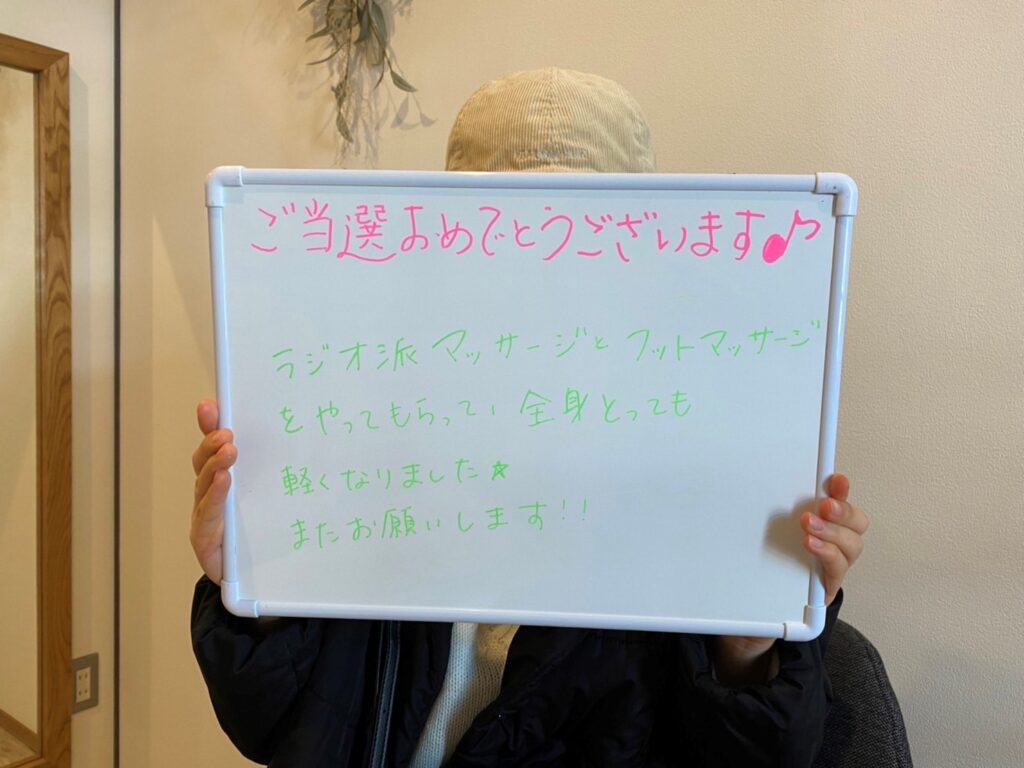 ご当選おめでとうございます♪
ラジオ派マッサージとフットマッサージ
をやってもらって、全身とっても
軽くなりました☆
またお願いします!!